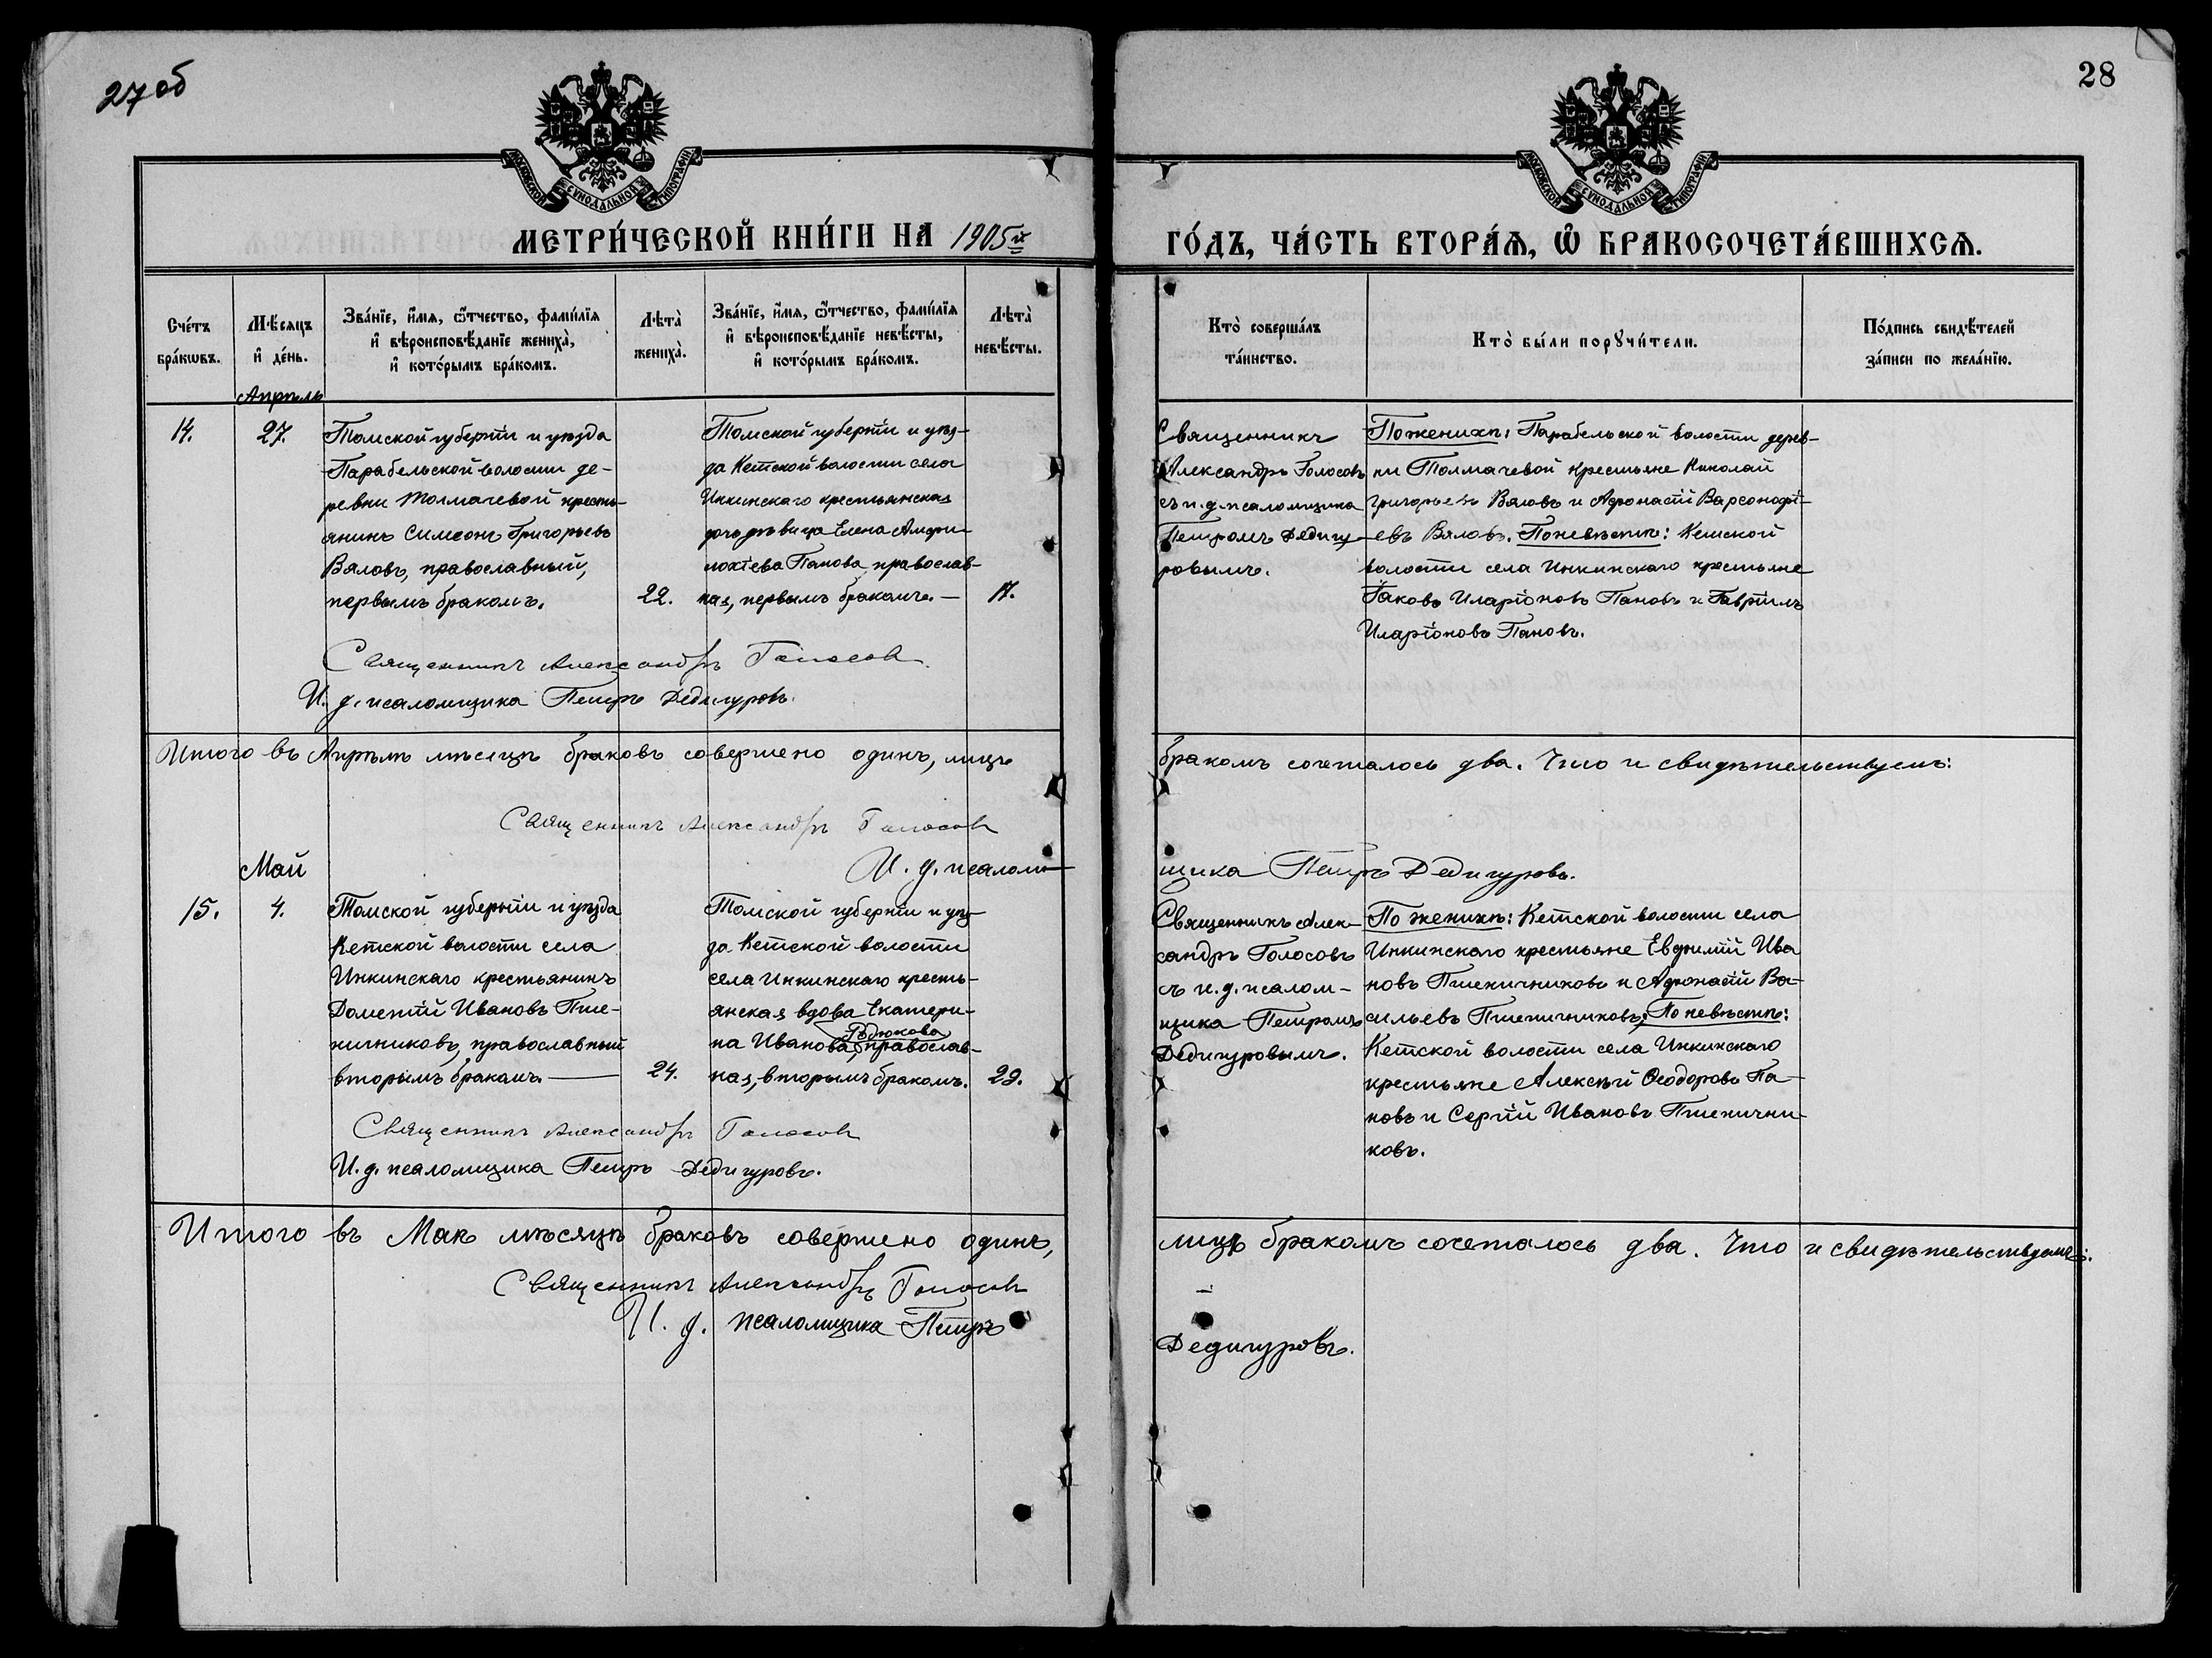 27 об
28
МОСКОВСКОЙ СУНОДАЛЬНОЙ ТИПОГРАФІИ
МОСКОВСКОЙ СУНОДАЛЬНОЙ ТИПОГРАФІИ
МЕТРИ́ЧЕСКОЙ КНИ́ГИ НА 1905й
ГО́ДЪ, ЧА́СТЬ ВТОРА́Ѧ, Ѽ БРАКОСОЧЕТА́ВШИХСѦ.
Сче́тъ
бра́кѡвъ.
Мѣ́сяцъ
и҆ де́нь.
Зва́нїе, и҆́мѧ, ѻ҆́тчество, фами́лїѧ
и҆ вѣроисповѣ́данїе жениха̀,
и҆ кото́рымъ бра́комъ.
Лѣта̀
жениха̀.
Зва́нїе, и҆́мѧ, ѻ҆́тчество, фами́лїѧ
и҆ вѣроисповѣ́данїе невѣ́сты,
и҆ кото́рымъ бра́комъ.
Лѣта̀
невѣ́сты.
Кто̀ соверша́лъ
та́инство.
Кто̀ бы́ли порꙋчи́тели.
По́дпись свидѣ́телей
за́писи по жела́нїю.
Апрѣль
14.
27.
Томской губерніи и уѣзда
Парабельской волости де-
ревни Толмачевой кресть-
янинъ Симеонъ Григорьевъ
Вяловъ, православный,
первымъ бракомъ.
22.
Томской губерніи и уѣз-
да Кетской волости села
Инкинскаго крестьянская
дочь дѣвица Елена Амфи-
лохіева Панова, православ-
ная, первымъ бракомъ. —
17.
Священникъ
Александръ Голосовъ
съ и. д. псаломщика
Петромъ Дедигу-
ровымъ.
По женихѣ: Парабельской волости дерев-
ни Толмачевой крестьяне Николай
Григорьевъ Вяловъ и Афонасій Варсонофі-
евъ Вяловъ. По невѣстѣ: Кетской
волости села Инкинскаго крестьяне
Іаковъ Иларіоновъ Пановъ и Гавріилъ
Иларіоновъ Пановъ.
Священникъ Александръ Голосовъ
И. д. псаломщика Петръ Дедигуровъ.
Итого въ Апрѣлѣ мѣсяцѣ браковъ совершено одинъ, лицъ
бракомъ сочеталось два. Что и свидѣтельствуемъ:
Священникъ Александръ Голосовъ
И. д. псалом-
щика Петръ Дедигуровъ.
Май
15.
4.
Томской губерніи и уѣзда
Кетской волости села
Инкинскаго крестьянинъ
Дометій Ивановъ Пше-
ничниковъ, православный
вторымъ бракомъ. —
24.
Томской губерніи и уѣз-
да Кетской волости
села Инкинскаго кресть-
янская вдова Екатери-
Родюкова
на Иванова, православ-
ная, вторымъ бракомъ.
29.
Священникъ Алек-
сандръ Голосовъ
съ и. д. псалом-
щика Петромъ
Дедигуровымъ.
По женихѣ: Кетской волости села
Инкинскаго крестьяне Евфимій Ива
новъ Пшеничниковъ и Афонасій Ва-
сильевъ Пшеничниковъ; По невѣстѣ:
Кетской волости села Инкинскаго
крестьяне Алексѣй Ѳеодоровъ Па-
новъ и Сергій Ивановъ Пшенични-
ковъ.
Священникъ Александръ Голосовъ
И. д. псаломщика Петръ Дедигуровъ.
Итого въ Маѣ мѣсяцѣ браковъ совершено одинъ,
лицъ бракомъ сочеталось два. Что и свидѣтельствуемъ:
Священникъ Александръ Голосовъ
И. д. псаломщика Петръ
Дедигуровъ.